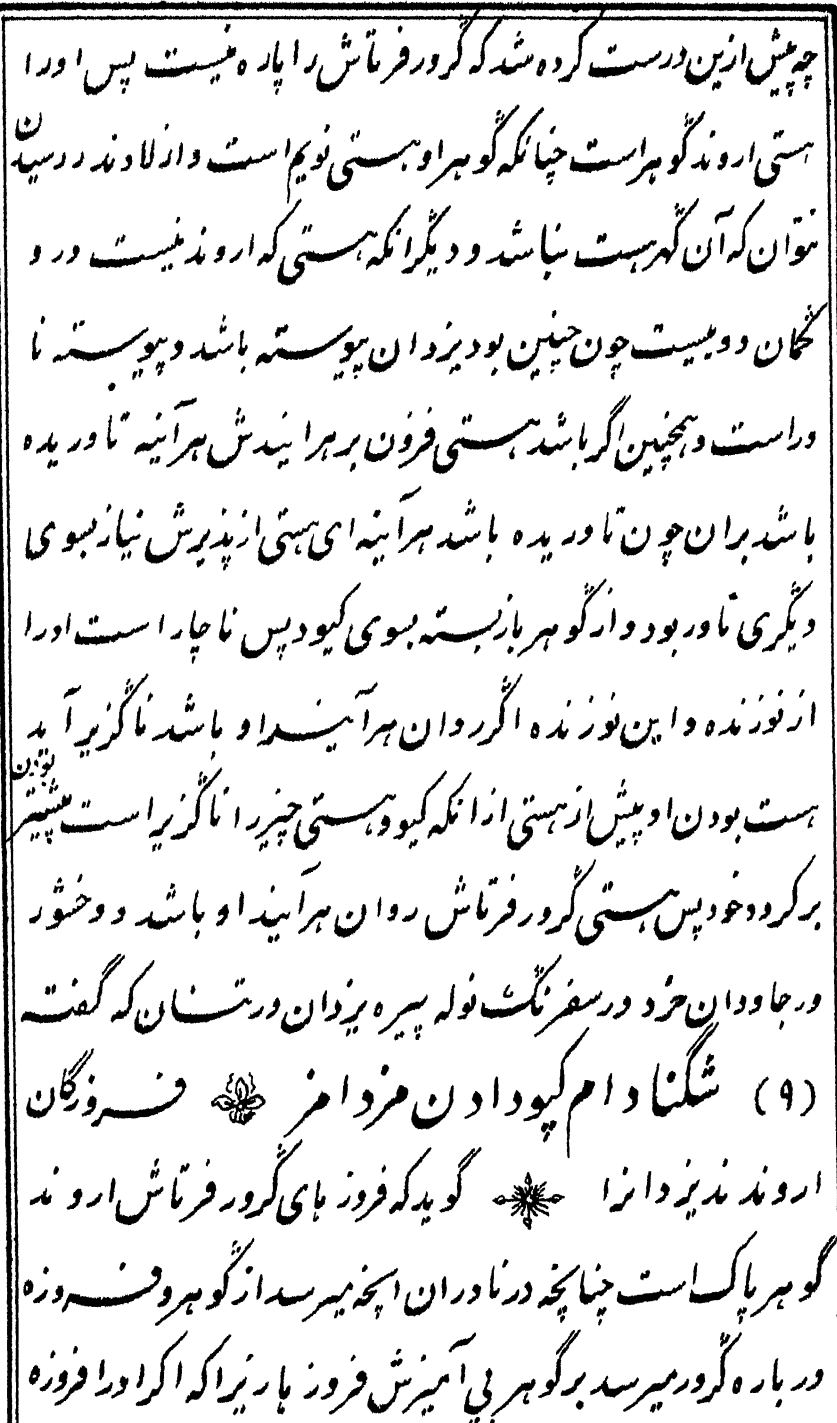 چه پیش ازین درست کرده شد که گرور فرتاش را پاره نیست پس اورا
هستی اروند گوهر است چنانکه گوهر او هستی نویم است و از لادند در رسیدن
نتوان که آن گهر هست نباشد و دیگر انکه هستی که اروند نیست در و
گمان دو بیست چون چنین بود یزدان پیوسته باشد و پیوسته نا
وراست و همچنین اگر باشد هستی فزون بر هرایندش هرآینه تاوریده
باشد بران چون تاوریده باشد هرآینه ای هستی از پذیرش نیاز بسوی
دیگری تاور بود و از گوهر باز بسته بسوی کیود پس ناچار است اورا
از نوزنده و این نوزنده اگر روان هرآیند او باشد ناگزیر آید
هست بودن او پیش از هستی ازانکه کیود هستی چیز را ناگزیر است پیشتر بودن
بر کرود خود پس هستی گرور فرتاش روان هرآیند او باشد و وخشور
در جاودان خرد در سفرنگ نوله پیره یزدان ورتسان که گفته
(۹) شگنا دام کپودادن مزدامز فروزگان
اروند ندیزدانرا گوید که فروزهای گرور فرتاش اروند
گوهر پاک است چنانچه در نادران انچه میرسد از گوهر و فروزه
در باره گرور میرسد بر گوهر بی آمیزش فروزها زیرا که اگر اورا فروزه